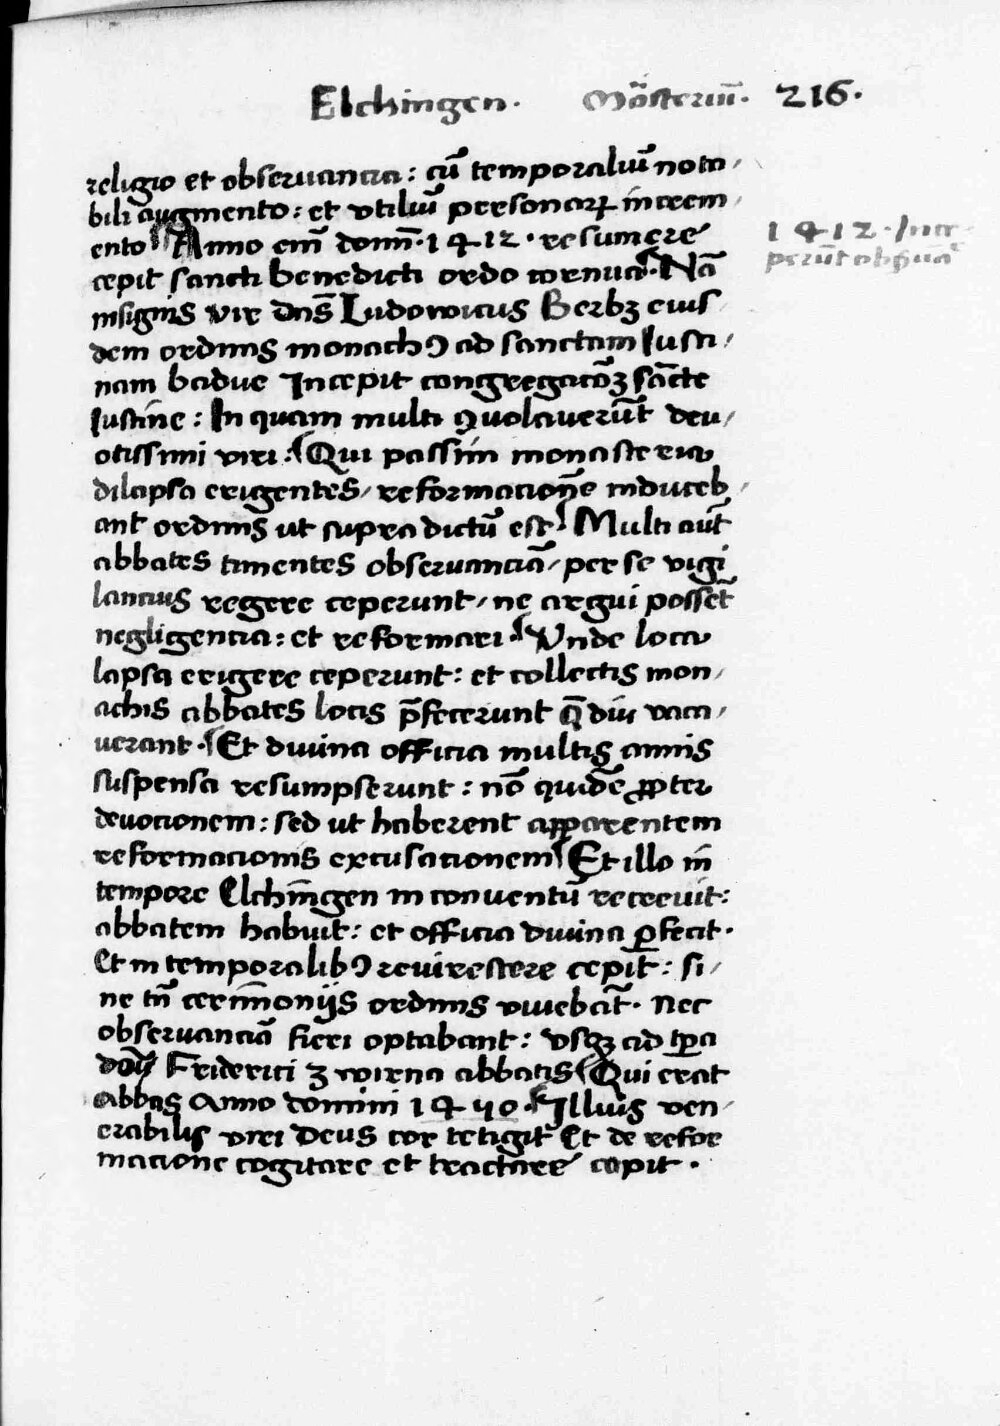 Elchingen. Mōasteriū̄. 216.
religio et obseruancia: cū temporaliū nota-
bili augmento: et vtiliū personarꝝ increm-
ento Anno em̄ domī. 1412. resumere
cepit sancti benedicti ordo cornua. Nā
insignis vir dn̄s Ludowicus Berbꝫ eius-
dem ordinis monachꝰ ad sanctam Iusti-
nam badue Incepit congregacōꝫ sācte
Iustine: In quam multi ꝯuolauerūt deu-
otissimi viri: Qui passim monasteria
dilapsa erigentes, reformacionē induceb-
ant ordinis ut supradictū est Multi aūt
abbates timentes obseruanciā, per se vigi
lancius regere ceperunt, ne argui possēt
negligencia: et reformari. Vnde loca
lapsa erigere ceperunt: et collectis mon-
achis abbates locis p̄fecerunt q̄ diu vaca-
uerant. Et diuina officia multis annis
suspensa resumpserunt: nō quidē ꝓpter
deuocionem: sed ut haberent apparentem
reformacionis excusacionem Et illo in
tempore Elchingen in conuentū recreuit:
abbatem habuit: et officia diuina ꝑfecit.
Et in temporalibꝰ reuirescere cepit: si-
ne tn̄ cerimoniijs ordinis viuebāt. Nec
obseruanciā fieri optabant: vsqꝫ ad tꝑa
dōi Friderici ꝫ wirna abbatis Qui erat
abbas Anno domini 1440. Illius ven-
erabilis viri Deus cor tetigit Et de refor
macione cogitare et tractare cepit.
1412. Ince-
perūt obẜuā